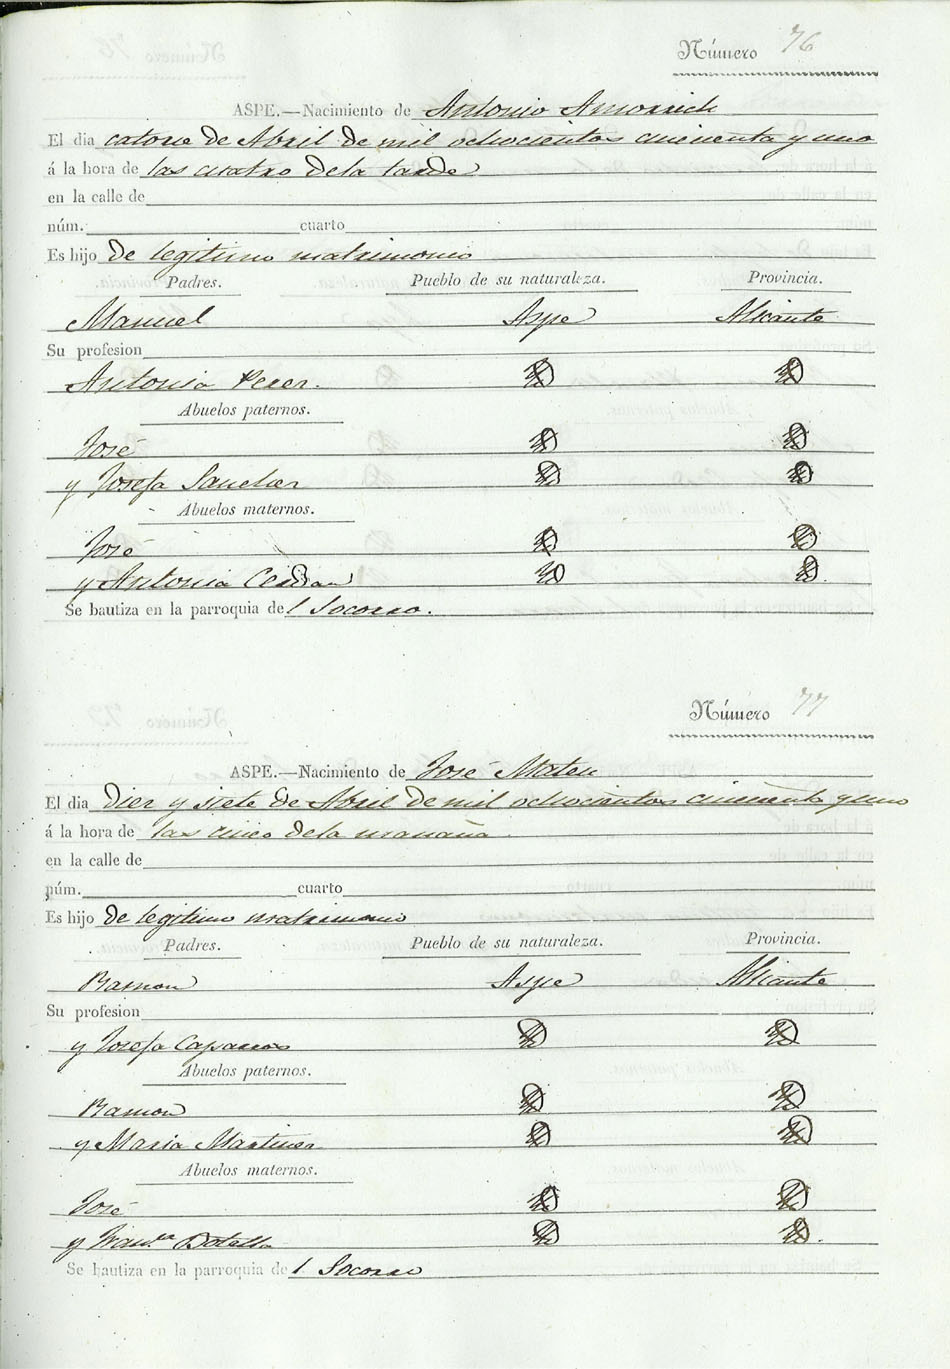 Número 76
ASPE.—Nacimiento de Antonio Amorrich
El dia catorce de Abril de mil ochocientos cincuenta y uno
á la hora de las cuatro dela tarde
en la calle de
núm. cuarto
Es hijo de legitimo matrimonio
Padres. Pueblo de su naturaleza. Provincia.
Manuel Aspe Alicante
Su profesion
Antonia Perez.
Abuelos paternos.
José
y Josefa Sanchez
Abuelos maternos.
José
y Antonia Cerdan
Se bautiza en la parroquia del Socorro.
Número 77
ASPE.—Nacimiento de José Mateu
El dia diez y siete de Abril de mil ochocientos cincuenta y uno
á la hora de las cinco dela mañana
en la calle de
núm. cuarto
Es hijo de legitimo matrimonio
Padres. Pueblo de su naturaleza. Provincia.
Ramon Aspe Alicante
Su profesion
y Josefa Caparros
Abuelos paternos.
Ramon
y Maria Martinez
Abuelos maternos.
José
y Fran.ca Botella
Se bautiza en la parroquia del Socorro